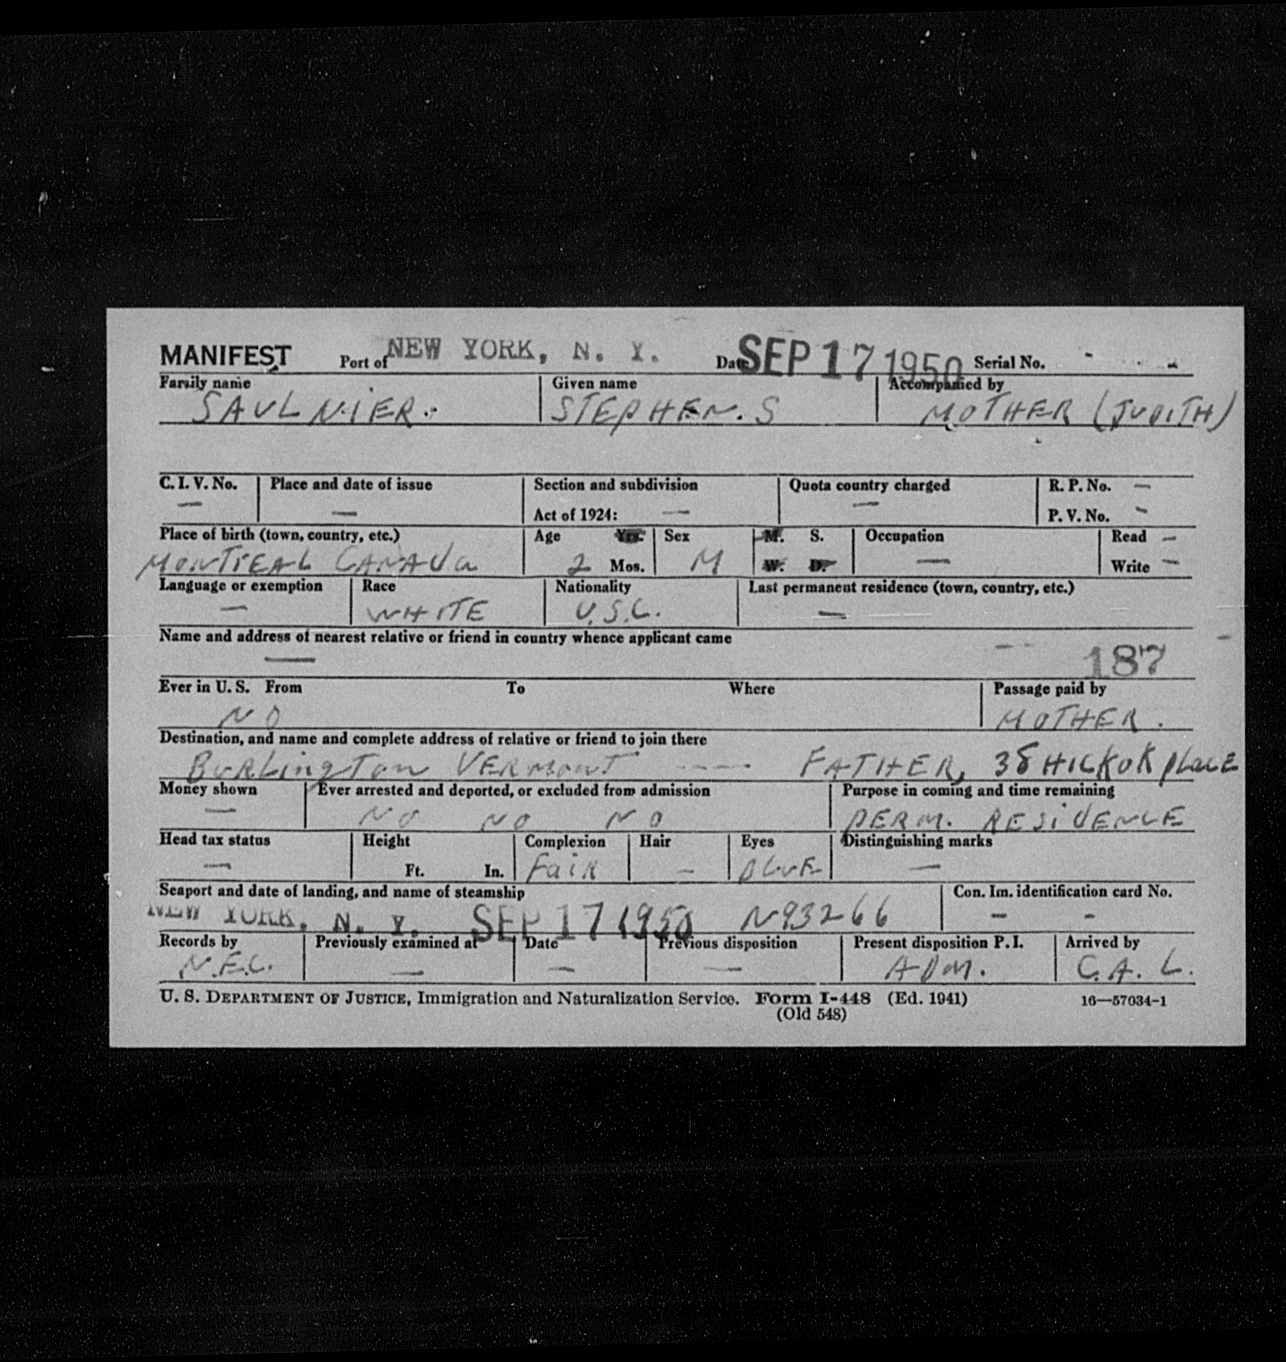 MANIFEST Port of NEW YORK, N. Y. Date SEP 17 1950 Serial No. -
Family name Given name Accompanied by
SAULNIER. STEPHEN. S MOTHER (JUDITH)
C. I. V. No. Place and date of issue Section and subdivision Quota country charged R. P. No. —
— — Act of 1924: — — P. V. No. -
Place of birth (town, country, etc.) Age Yrs. Sex M. S. Occupation Read —
MONTREAL CANADA 2 Mos. M W. D. — Write —
Language or exemption Race Nationality Last permanent residence (town, country, etc.)
— WHITE U.S.C. —
Name and address of nearest relative or friend in country whence applicant came
— 187
Ever in U. S. From To Where Passage paid by
NO MOTHER.
Destination, and name and complete address of relative or friend to join there
BURLINGTON VERMONT ---- FATHER, 38 HICKOK PLACE
Money shown Ever arrested and deported, or excluded from admission Purpose in coming and time remaining
— NO NO NO PERM. RESIDENCE
Head tax status Height Complexion Hair Eyes Distinguishing marks
— Ft. In. FAIR — BLUE —
Seaport and date of landing, and name of steamship Con. Im. identification card No.
NEW YORK, N. Y. SEP 17 1950 N93266 - -
Records by Previously examined at Date Previous disposition Present disposition P. I. Arrived by
N.E.C. — — — ADM. C.A.L.
U. S. DEPARTMENT OF JUSTICE, Immigration and Naturalization Service. Form I-448 (Ed. 1941) 16—57034-1
(Old 548)